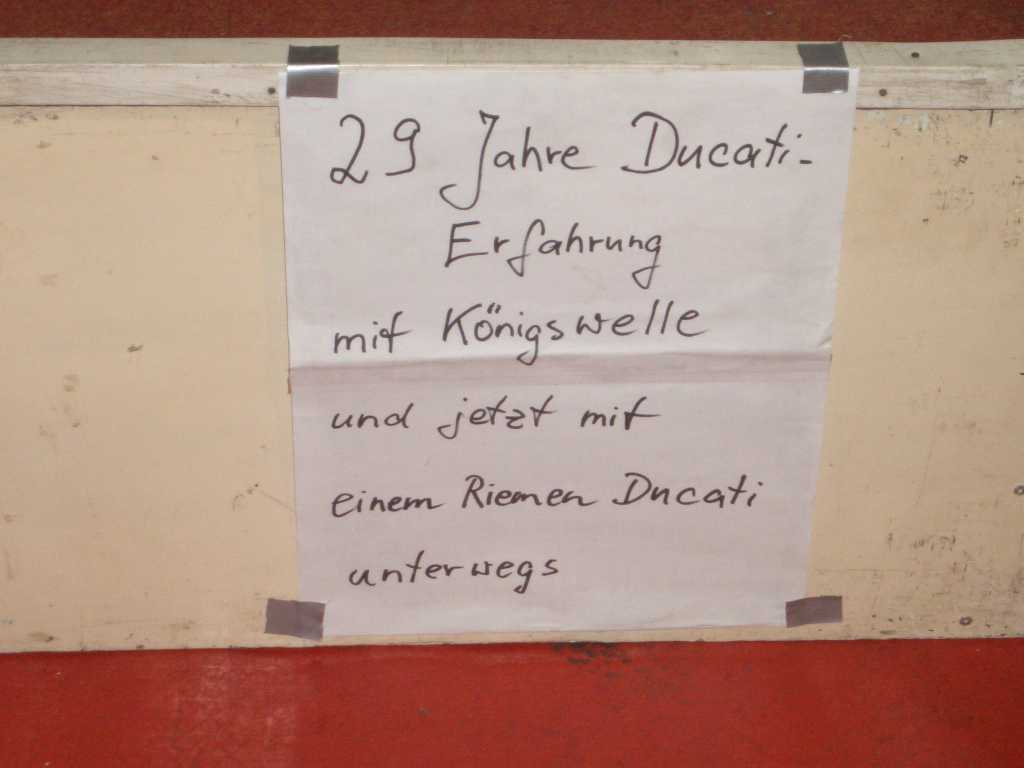 29 Jahre Ducati-
Erfahrung
mit Königswelle
und jetzt mit
einem Riemen Ducati
unterwegs